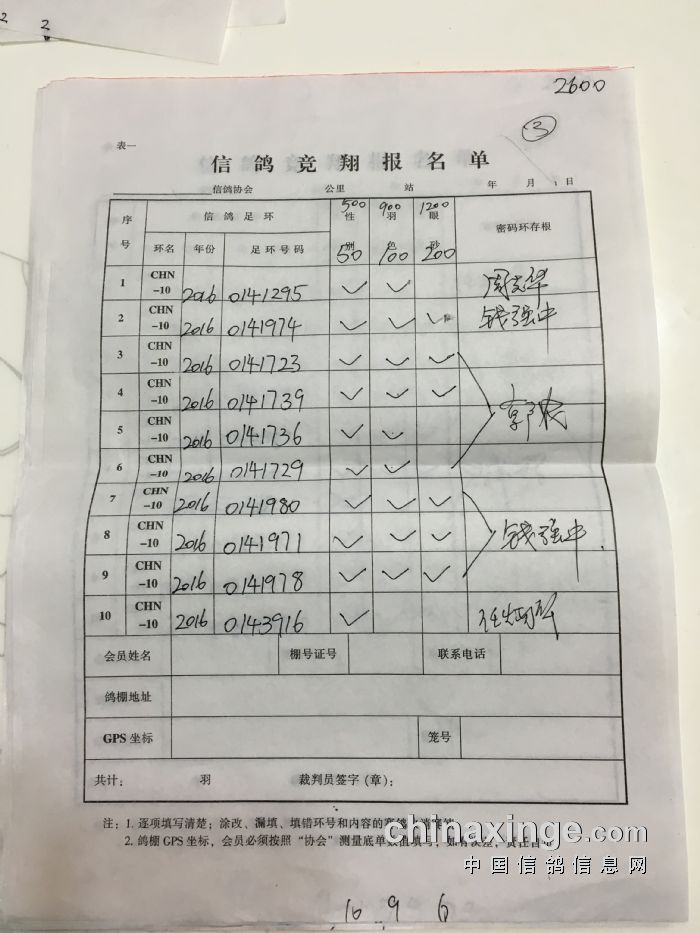 2
2
2600
3
表一
信鸽竞翔报名单
信鸽协会 公里 站 年 月 日
序号 信鸽足环 500 性别 50 900 羽色 100 1200 眼 200 密码环存根
环名 年份 足环号码
1 CHN-10 2016 0141295 ✓ ✓
2 CHN-10 2016 0141974 ✓ ✓ ✓ 钱强中
3 CHN-10 2016 0141723 ✓ ✓ ✓
4 CHN-10 2016 0141739 ✓ ✓ ✓
5 CHN-10 2016 0141736 ✓ ✓
6 CHN-10 2016 0141729 ✓ ✓
7 CHN-10 2016 0141980 ✓ ✓ ✓
8 CHN-10 2016 0141971 ✓ ✓ ✓ 钱强中
9 CHN-10 2016 0141978 ✓ ✓ ✓
10 CHN-10 2016 0143916 ✓
会员姓名 棚号证号 联系电话
鸽棚地址
GPS 坐标 笼号
共计： 羽 裁判员签字（章）：
注：1. 逐项填写清楚；涂改、漏填、填错环号和内容的
2. 鸽棚 GPS 坐标，会员必须按照“协会”测量底单数值填写，如有误差，责任自
chinaxinge.com
中国信鸽信息网
16 9 6